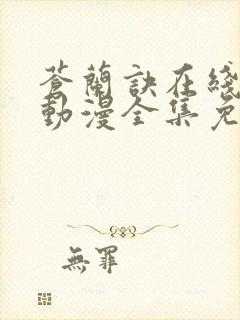 蒼蘭訣在綫
動漫全集免
無罪